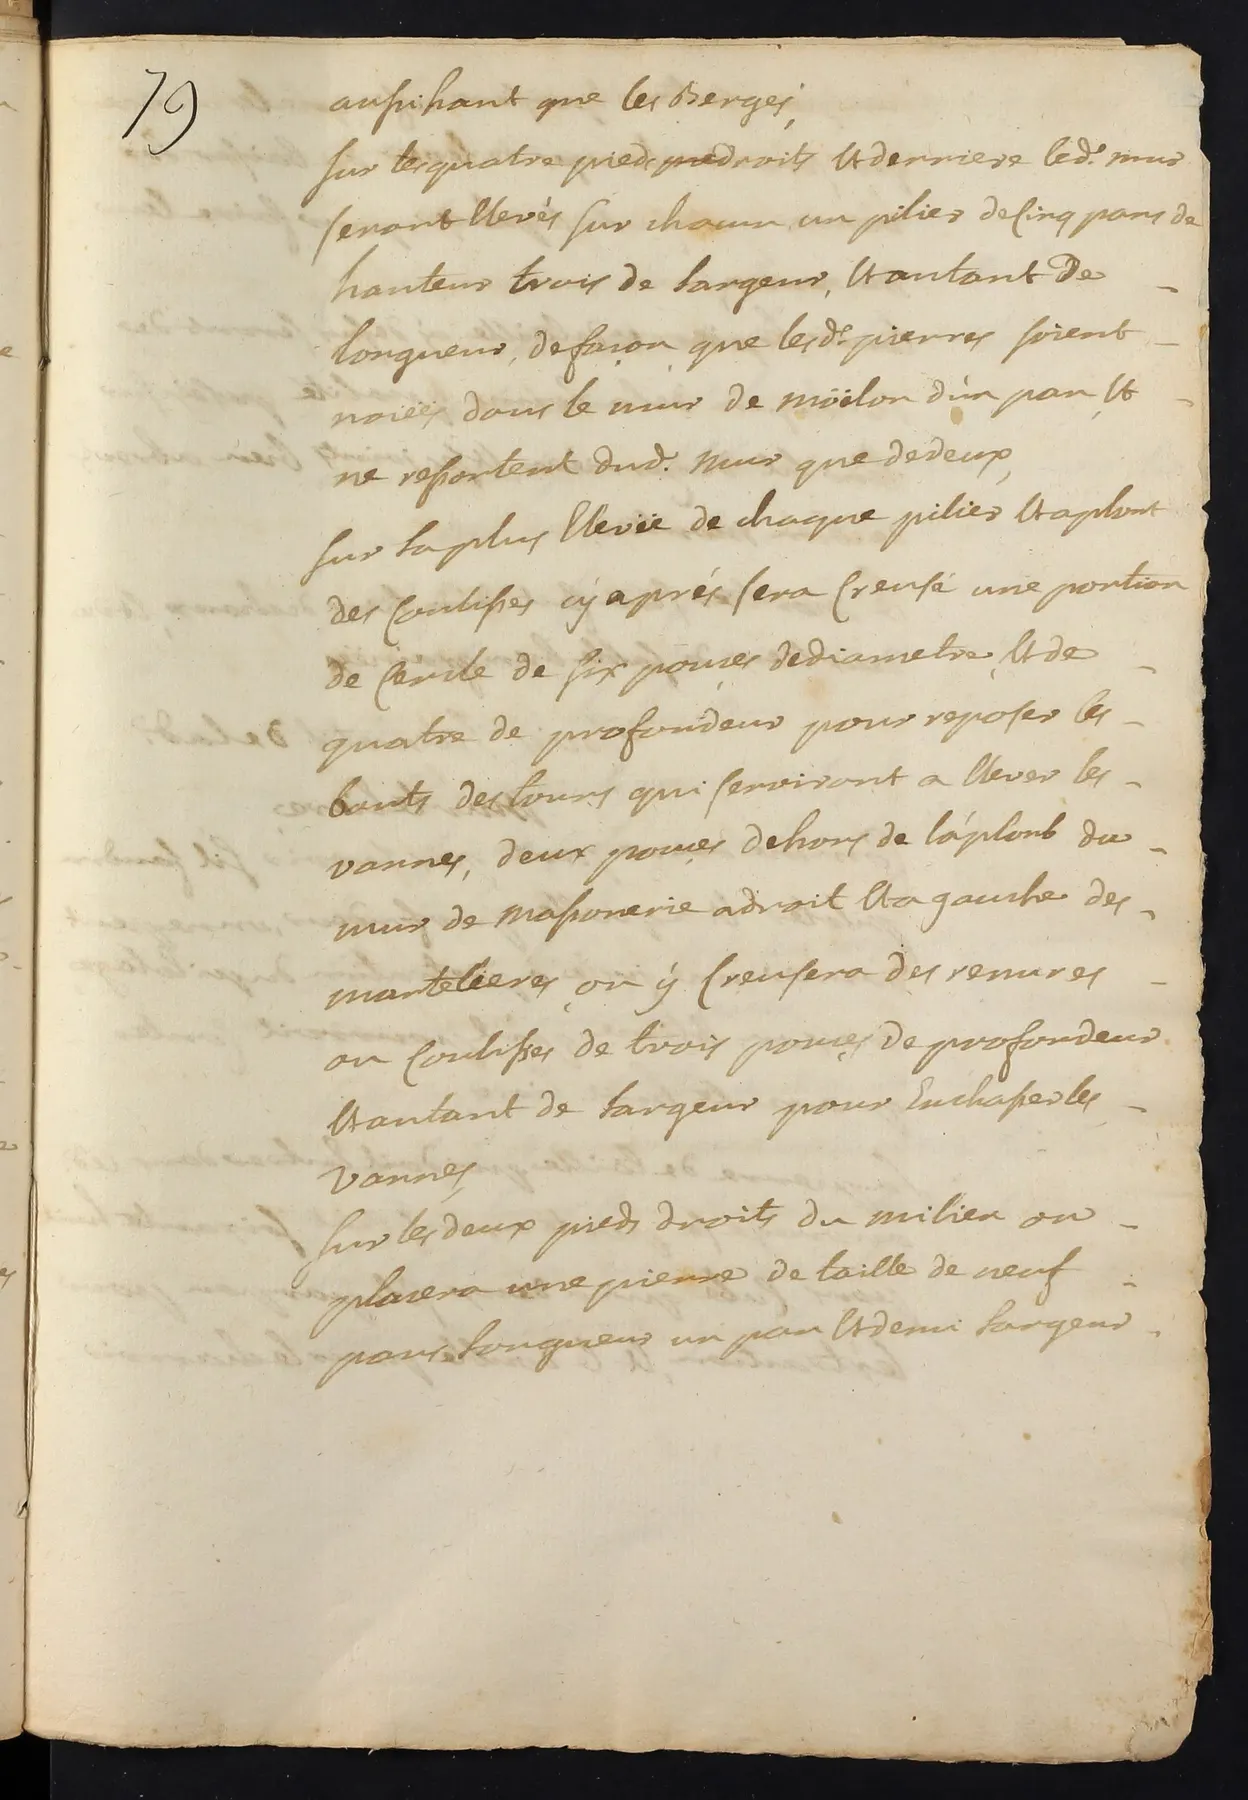 79
aussihaut que les Berges,
sur lesquatre pieds droits et derriere led.t mur
seront Elevés sur chacun un pilier de Cinq pans de
hauteur trois de largeur, et autant De
longueur, defacon que lesd.s pierres soient
noiées dans le mur de möelon d'un pan et
ne ressortent dud. mur que dedeux,
sur laplus Elevée de chaque pilier et aplont
des Coulisses cÿ aprés sera Creusé une portion
de Cercle de six pouces dediametre, et de
quatre de profondeur pour reposer les
bouts des tours qui serviront a Elever les
vannes, deux pouces dehors de l'áplonb du
mur de massonerie adroit et a gauche des
martelieres, on ÿ Creusera des renures
ou Coulisses de trois pouces de profondeur
et autant de largeur pour Enchasser les
vannes,
sur les deux pieds droits du milieu on
placera une pierre de taille de neuf
pans longueur un pan et demi largeur